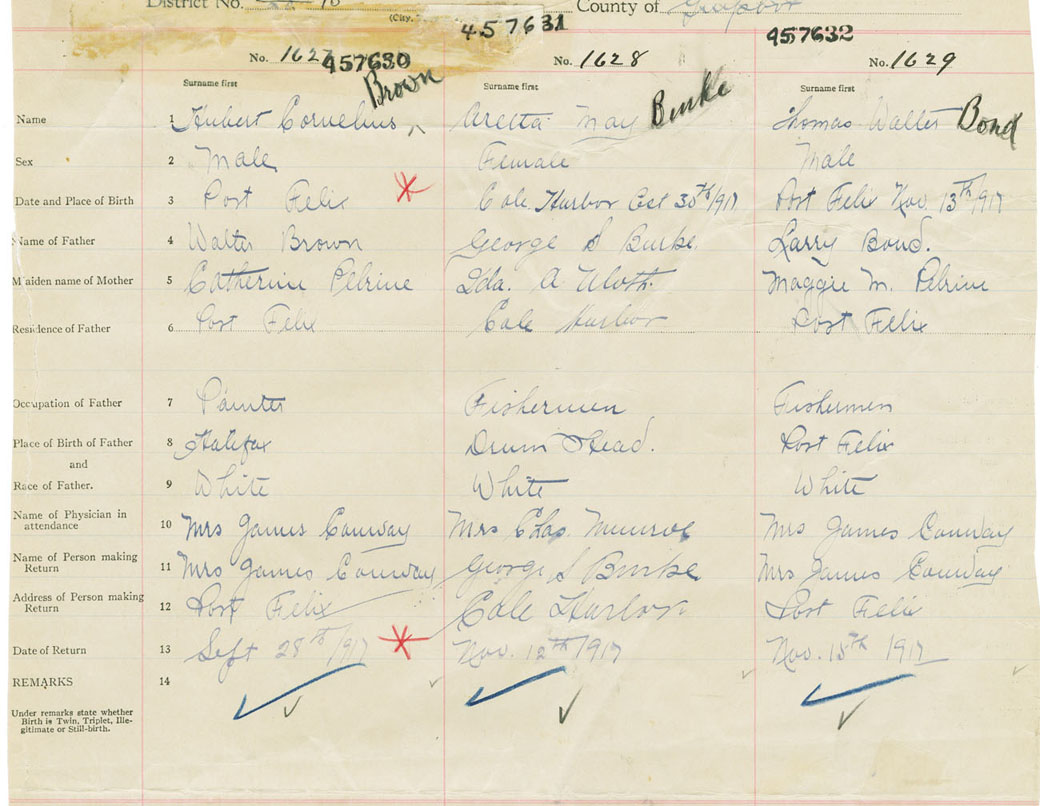 District No. 10 County of
(City.
457631
457632
No. 1627 457630 No. 1628 No. 1629
Surname first Surname first Surname first
Name 1 Hubert Cornelius Brown Aretta May Burke Thomas Walter Bond
Sex 2 Male Female Male
Date and Place of Birth 3 Port Felix Cole Harbor Oct 30th/1917 Port Felix Nov 13th/1917
Name of Father 4 Walter Brown George S Burke Larry Bond.
Maiden name of Mother 5 Catherine Pelrine Ida. A Uloth. Maggie M. Pelrine
Residence of Father 6 Port Felix Cole Harbor Port Felix
Occupation of Father 7 Painter Fishermen Fishermen
Place of Birth of Father 8 Halifax Drum Head. Port Felix
and
Race of Father. 9 White White White
Name of Physician in
attendance 10 Mrs James Conway Mrs Chas. Munroe Mrs James Conway
Name of Person making
Return 11 Mrs James Conway George S Burke Mrs James Conway
Address of Person making
Return 12 Port Felix Cole Harbor Port Felix
Date of Return 13 Sept 28th/1917 Nov. 12th/1917 Nov. 15th 1917
REMARKS 14
Under remarks state whether
Birth is Twin, Triplet, Ille-
gitimate or Still-birth.